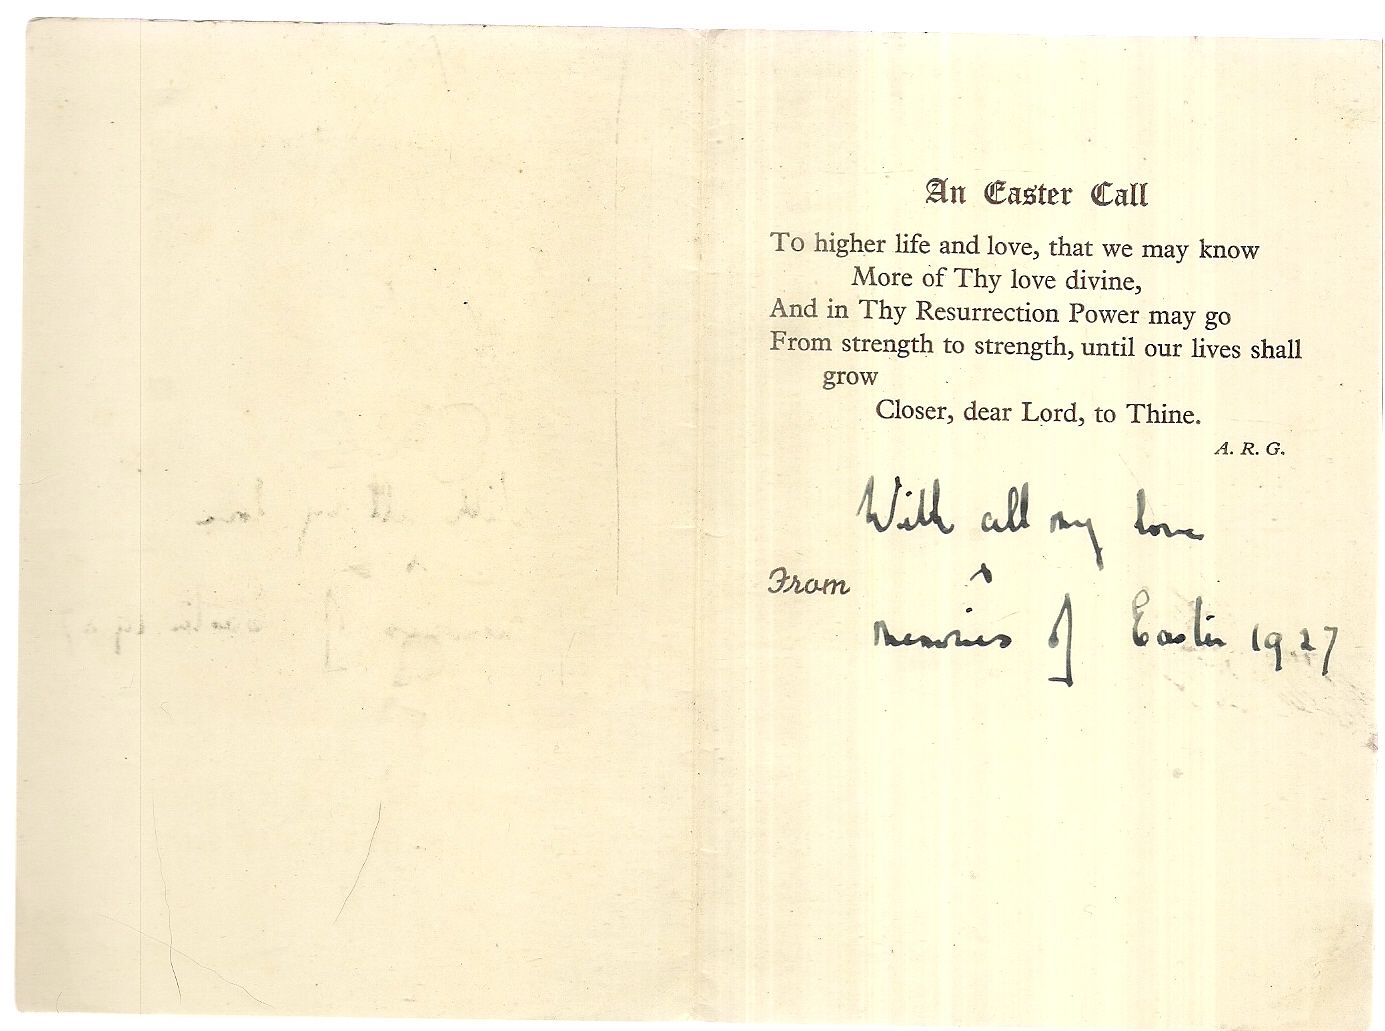 An Easter Call
To higher life and love, that we may know
More of Thy love divine,
And in Thy Resurrection Power may go
From strength to strength, until our lives shall
grow
Closer, dear Lord, to Thine.
A. R. G.
With all my love
From
&
memories of Easter 1927